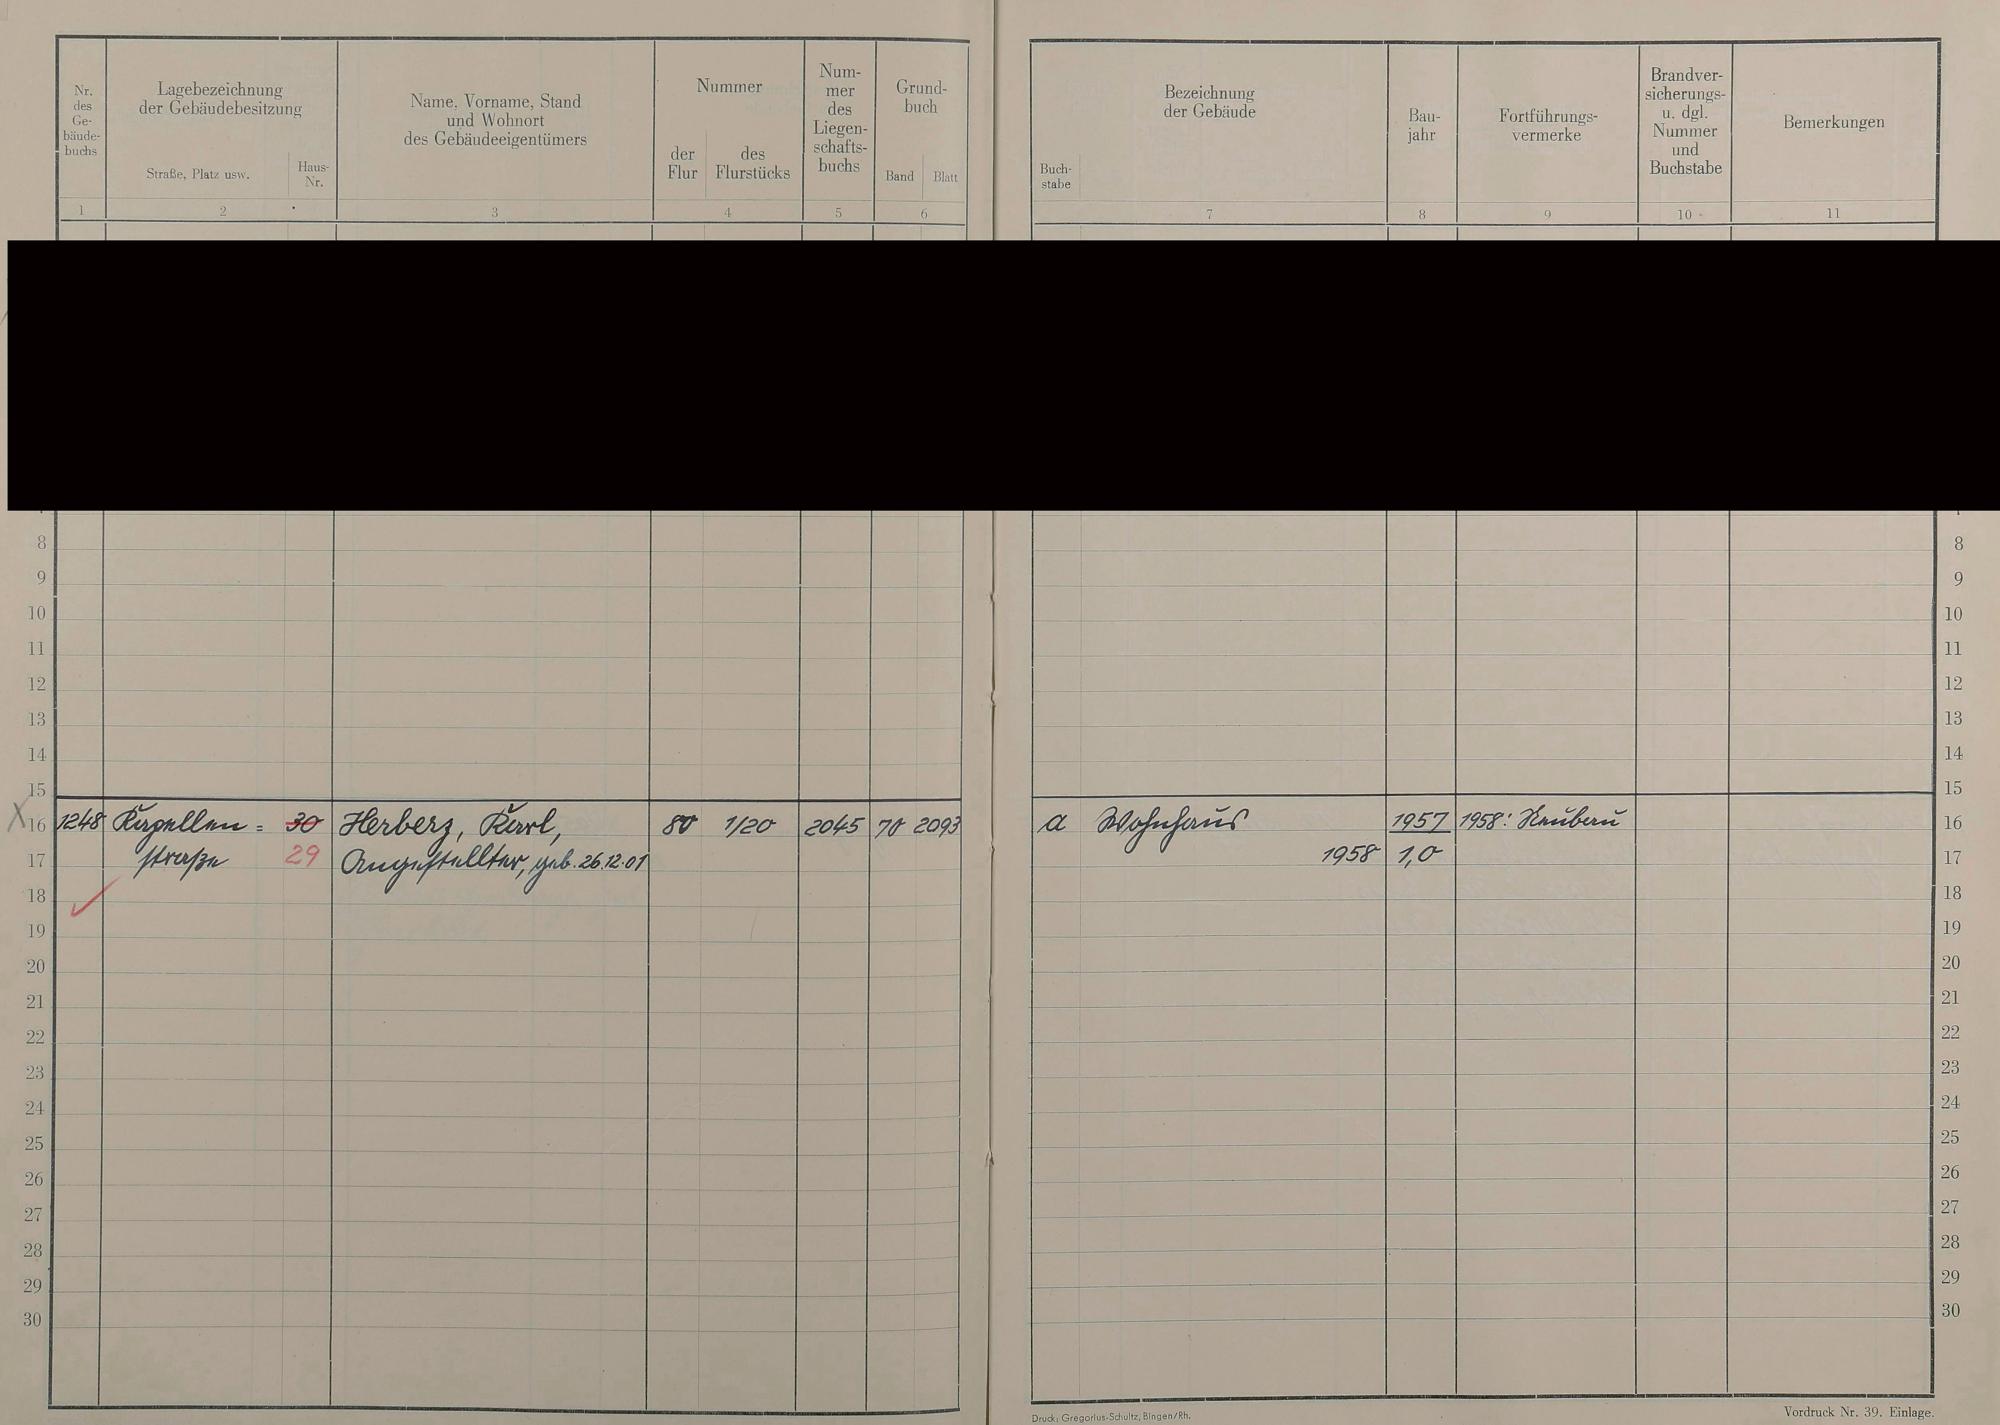 Nr.
des
Ge-
bäude-
buchs
Lagebezeichnung
der Gebäudebesitzung
Straße, Platz usw.
Haus-
Nr.
Name, Vorname, Stand
und Wohnort
des Gebäudeeigentümers
Nummer
der
Flur
des
Flurstücks
Num-
mer
des
Liegen-
schafts-
buchs
Grund-
buch
Band
Blatt
1 2 3 4 5 6
Buch-
stabe
Bezeichnung
der Gebäude
Bau-
jahr
Fortführungs-
vermerke
Brandver-
sicherungs-
u. dgl.
Nummer
und
Buchstabe
Bemerkungen
7 8 9 10 11
8 8
9 9
10 10
11 11
12 12
13 13
14 14
15 15
16 1248 Kapellen= 30 Herberz, Karl, 80 1/20 2045 70 2093 a Wohnhaus 1957 1958: Neubau 16
17 straße 29 Angestellter, geb. 26.12.01 1958 1,0 17
18 18
19 19
20 20
21 21
22 22
23 23
24 24
25 25
26 26
27 27
28 28
29 29
30 30
Druck: Gregorius-Schultz, Bingen/Rh.
Vordruck Nr. 39. Einlage.